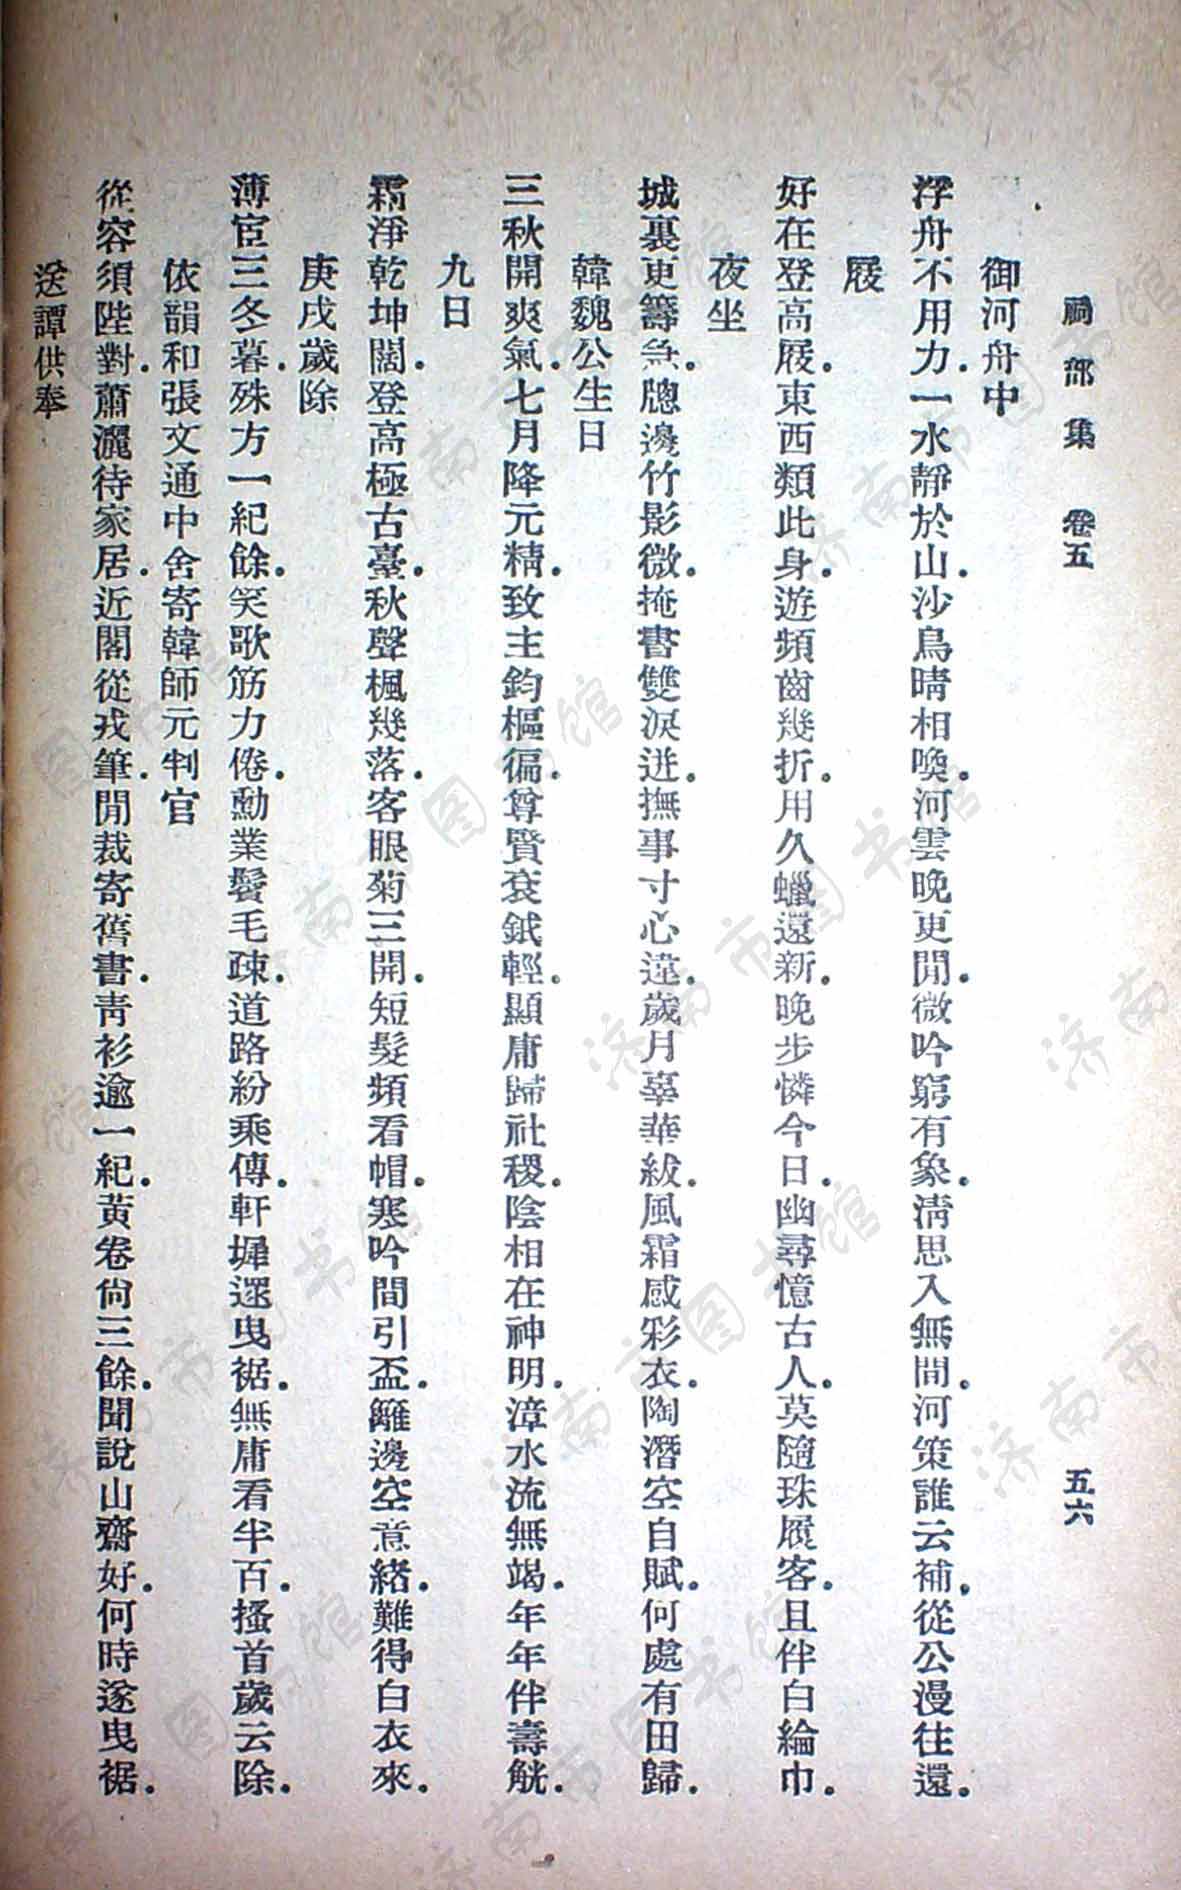 鄱部集　卷五　五六
御河舟中
浮舟不用力．一水靜於山．沙鳥晴相喚．河雲晚更閒．微吟窮有象．淸思入無間．河策誰云補．從公漫往還．
屐
好在登高屐．東西類此身．遊頻齒幾折．用久蠟還新．晚步憐今日．幽尋憶古人．莫隨珠履客．且伴白綸巾．
夜坐
城裏更籌急．牕邊竹影微．掩書雙淚迸．撫事寸心違．歲月辜華紱．風霜感彩衣．陶潛空自賦．何處有田歸．
韓魏公生日
三秋開爽氣．七月降元精．致主鈞樞徧．尊賢袞鉞輕．顯庸歸社稷．陰相在神明．漳水流無竭．年年伴壽觥．
九日
霜淨乾坤闊．登高極古臺．秋聲楓幾落．客眼菊三開．短髮頻看帽．寒吟間引盃．籬邊空意緒．難得白衣來．
庚戌歲除
薄宦三冬暮．殊方一紀餘．笑歌筋力倦．勳業鬢毛疎．道路紛乘傳．軒墀邃曳裾．無庸看半百．搔首歲云除．
依韻和張文通中舍寄韓師元判官
從容須陛對．蕭灑待家居．近閣從戎筆．閒裁寄舊書．靑衫逾一紀．黃卷尙三餘．聞說山齋好．何時遂曳裾．
送譚供奉